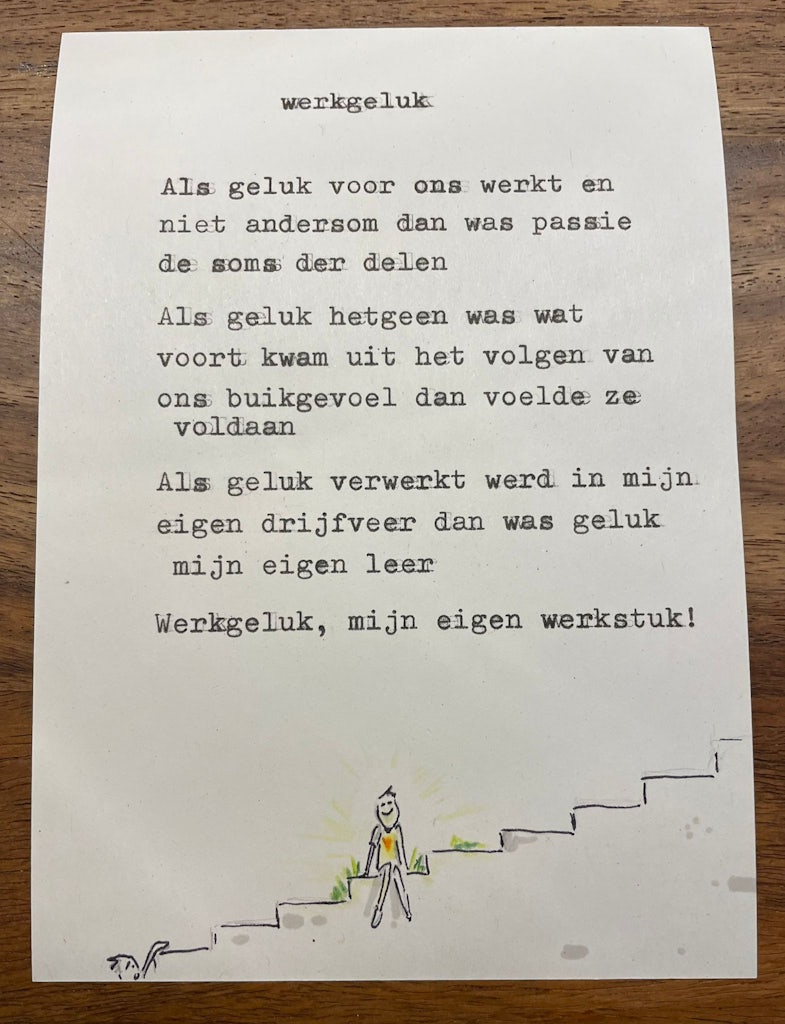 werkgeluk
Als geluk voor ons werkt en
niet andersom dan was passie
de soms der delen
Als geluk hetgeen was wat
voort kwam uit het volgen van
ons buikgevoel dan voelde ze
voldaan
Als geluk verwerkt werd in mijn
eigen drijfveer dan was geluk
mijn eigen leer
Werkgeluk, mijn eigen werkstuk!